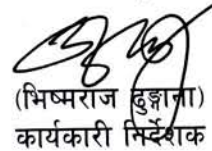 (भिष्मराज ढुङ्गाना)
कार्यकारी निर्देशक